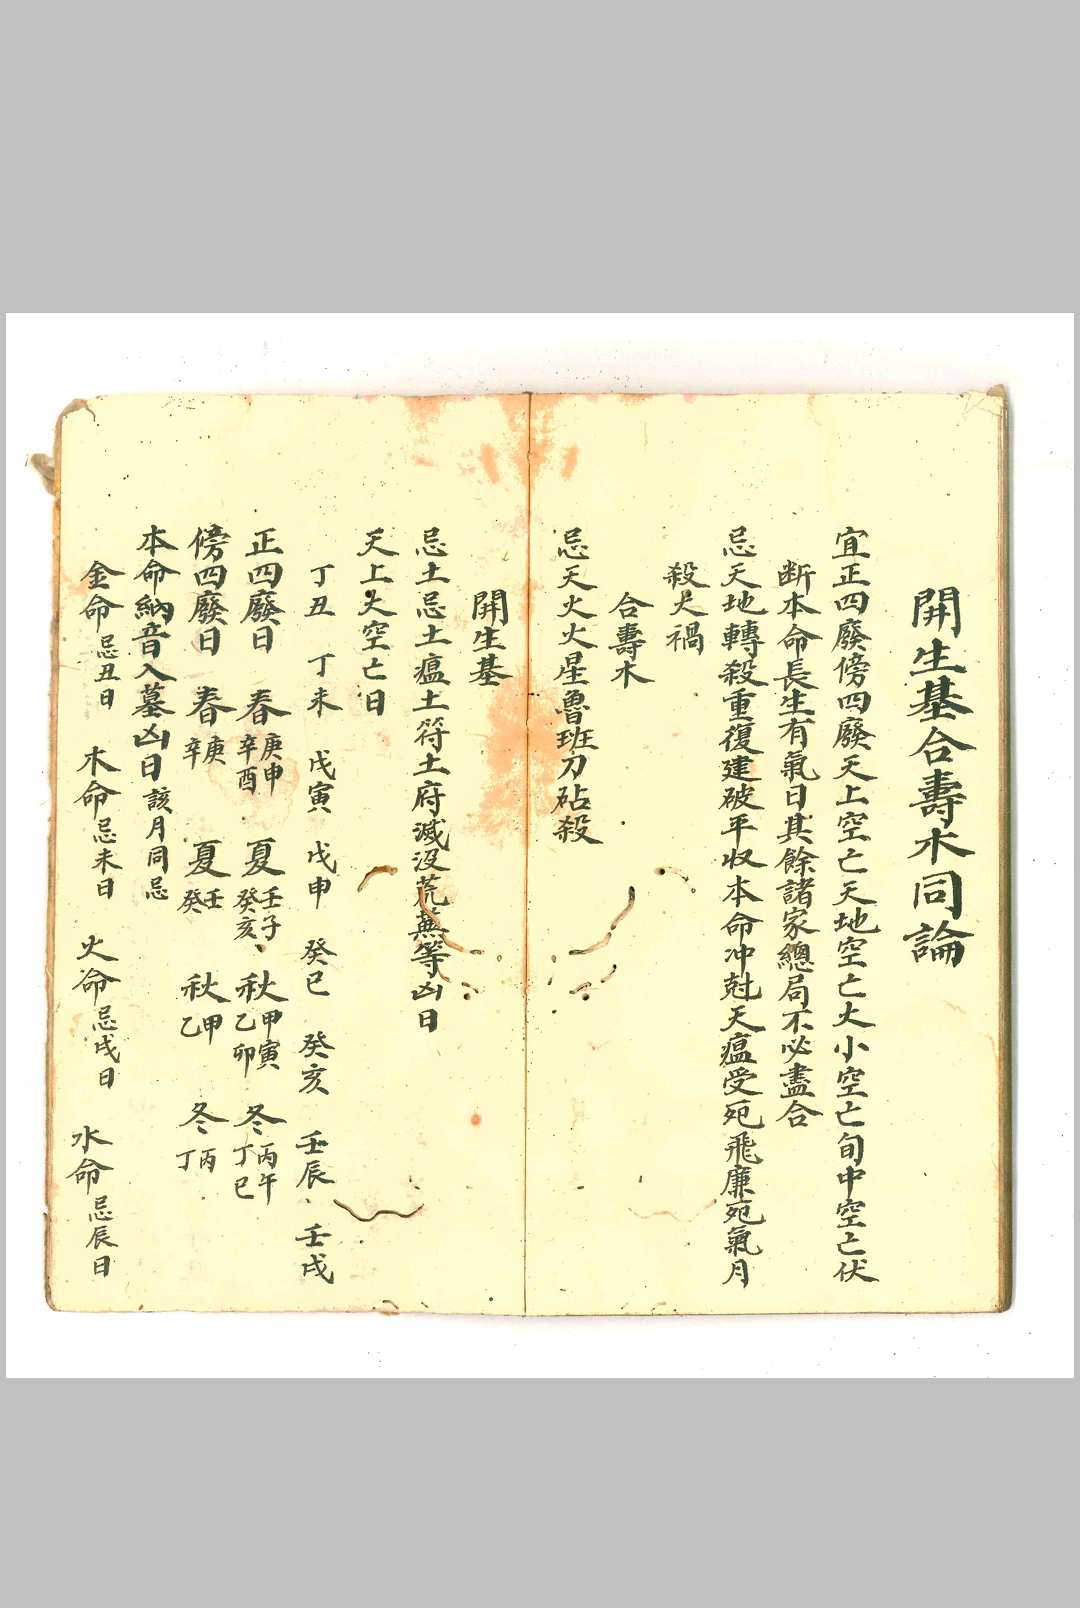 開生基合壽木同論
宜正四廢傍四廢天上空亡天地空亡大小空亡旬中空亡伏
断本命長生有氣日其餘諸家總局不必盡合
忌天地轉殺重復建破平收本命冲尅天瘟受死飛廉死氣月
殺大禍
合壽木
忌天火火星魯班刀砧殺
開生基
忌土忌土瘟土符土府滅没荒蕪等凶日
天上大空亡日
丁丑 丁未 戊寅 戊申 癸巳 癸亥 壬辰 壬戌
正四廢日 春庚申辛酉 夏壬子癸亥 秋甲寅乙卯 冬丙午丁巳
傍四廢日 春庚辛 夏壬癸 秋甲乙 冬丙丁
本命納音入墓凶日該月同忌
金命忌丑日 木命忌未日 火命忌戌日 水命忌辰日